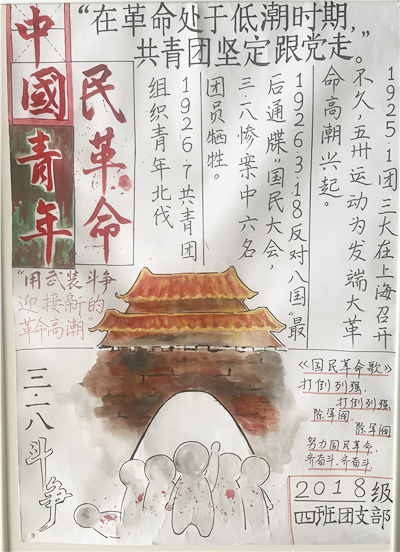 “在革命处于低潮时期，
共青团坚定跟党走。”
中國青年
民革命
1925.1团三大在上海召开
不久，五卅运动为发端大革
命高潮兴起。
1926.3.18反对八国“最
后通牒”国民大会，
三·一八惨案中六名
团员牺牲。
1926.7共青团
组织青年北伐
“用武装斗争
迎接新的
革命高潮”
三·一八斗争
《国民革命歌》
打倒列强、
打倒列强、
除军阀、
除军阀
努力国民革命、
齐奋斗、齐奋斗.
2018级
四班团支部